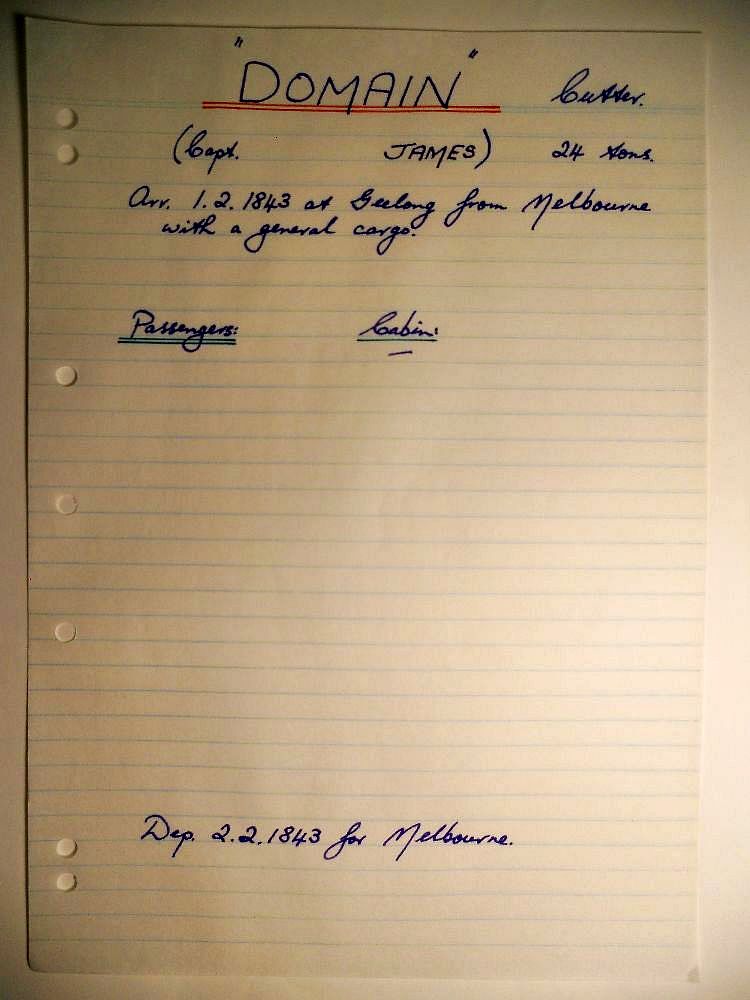 "DOMAIN" Cutter.
(Capt. JAMES) 24 tons.
Arr. 1.2.1843 at Geelong from Melbourne
with a general cargo.
Passengers: Cabin:
—
Dep. 2.2.1843 for Melbourne.